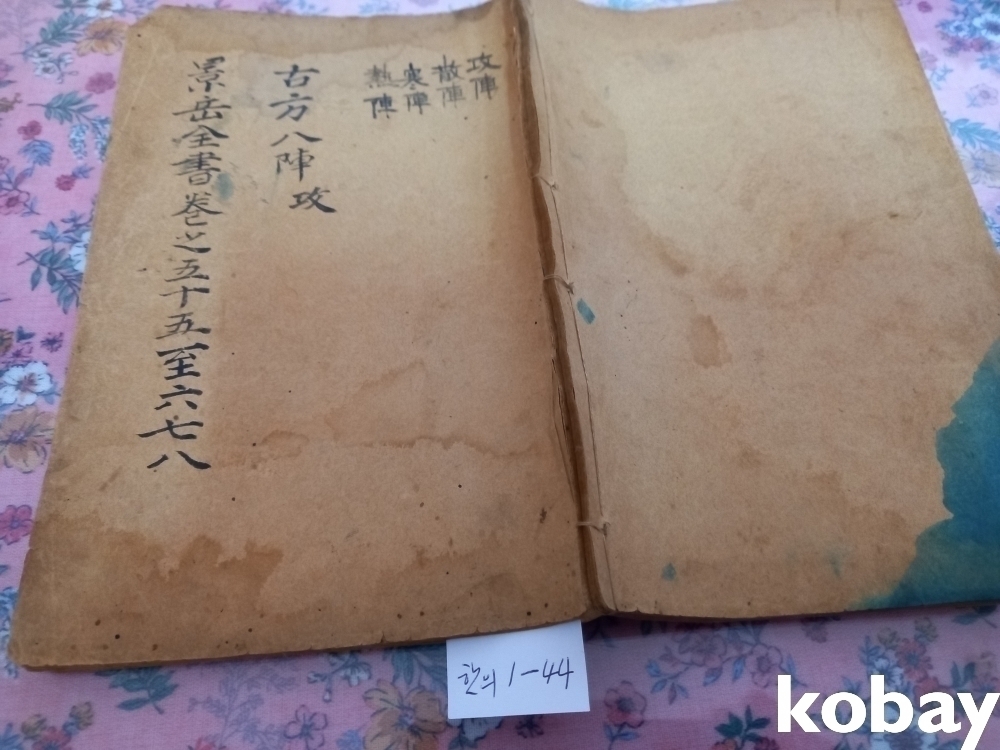 攻陣
散陣
寒陣
熱陣
古方八陣攻
景岳全書卷之五十五至六七八
한의 1-44
kobay